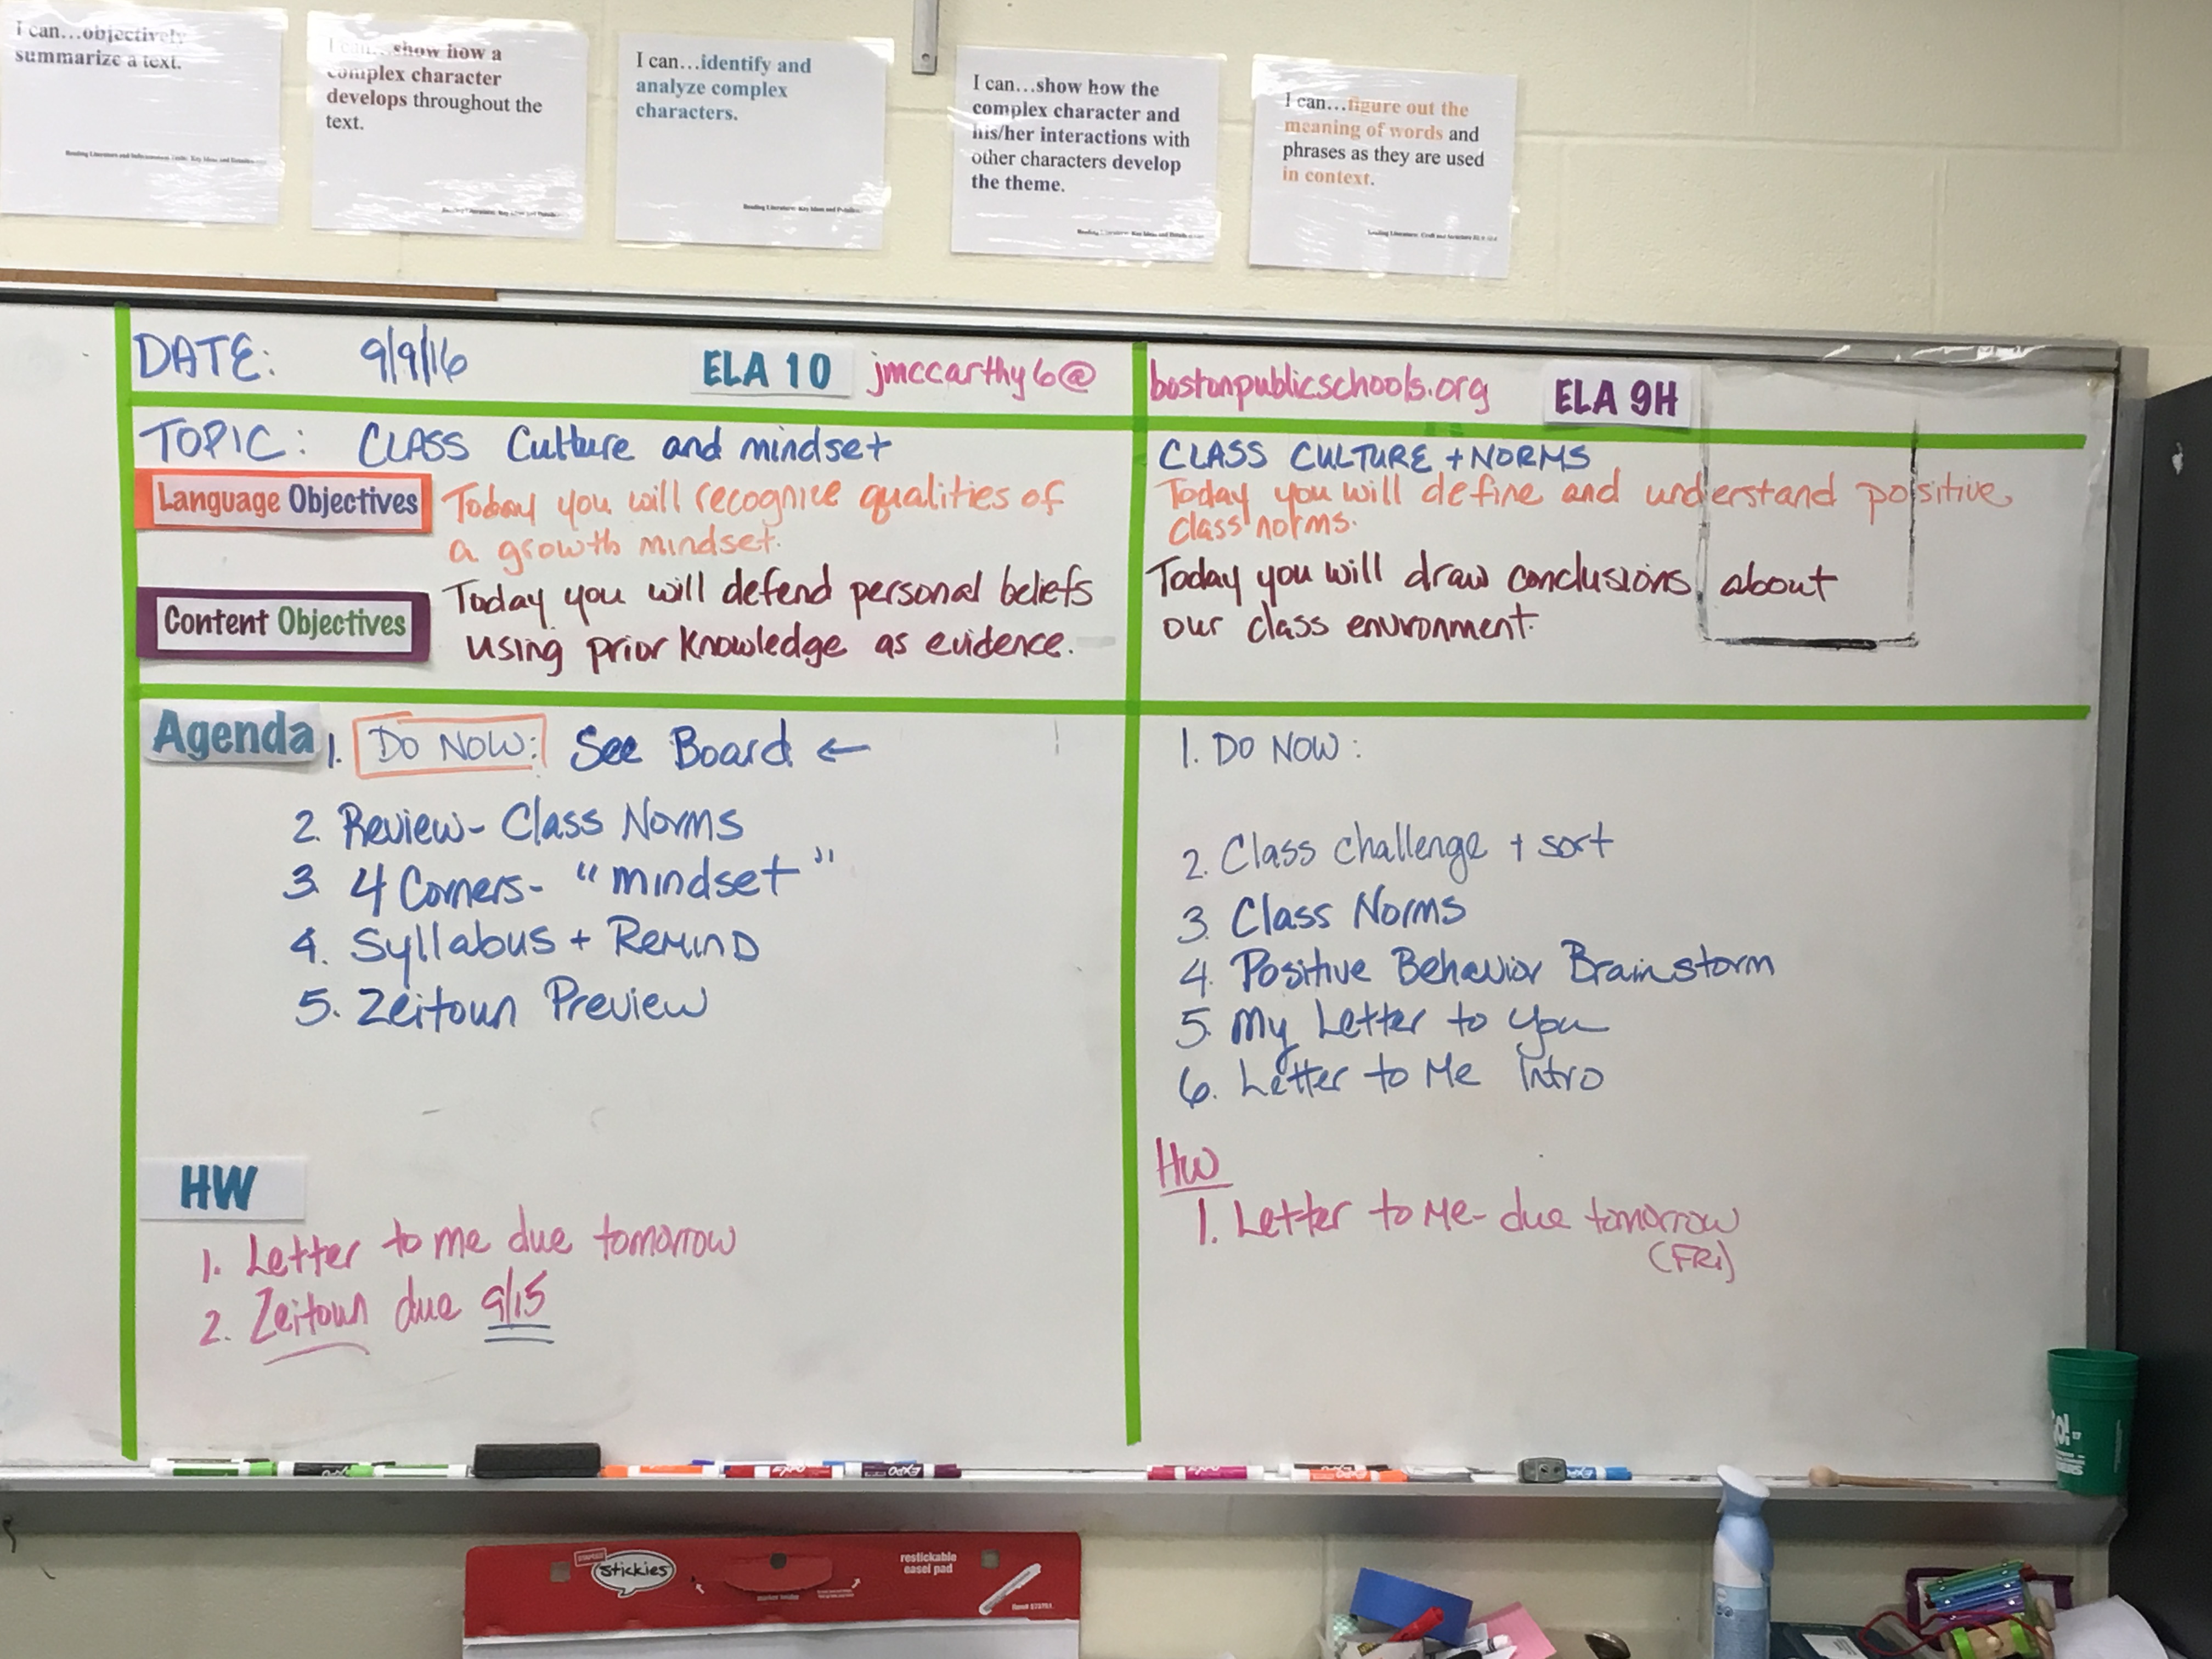 I can…objectively
summarize a text.
Reading Literature and Informational Texts: Key Ideas and Details
I can…show how a
complex character
develops throughout the
text.
Reading Literature: Key Ideas and Details
I can…identify and
analyze complex
characters.
Reading Literature: Key Ideas and Details
I can…show how the
complex character and
his/her interactions with
other characters develop
the theme.
Reading Literature: Key Ideas and Details
I can…figure out the
meaning of words and
phrases as they are used
in context.
Reading Literature: Craft and Structure
DATE: 9/9/16 ELA 10 jmccarthy6@
bostonpublicschools.org ELA 9H
TOPIC: CLASS Culture and mindset
Language Objectives Today you will recognize qualities of
a growth mindset.
Content Objectives Today you will defend personal beliefs
using prior knowledge as evidence.
CLASS CULTURE + NORMS
Today you will define and understand positive
class norms.
Today you will draw conclusions about
our class environment.
Agenda 1. DO NOW: See Board ←
2. Review- Class Norms
3. 4 Corners- "mindset"
4. Syllabus + REMIND
5. Zeitoun Preview
HW
1. Letter to me due tomorrow
2. Zeitoun due 9/15
1. DO NOW:
2. Class challenge + sort
3. Class Norms
4. Positive Behavior Brainstorm
5. My Letter to you
6. Letter to Me Intro
HW
1. Letter to Me- due tomorrow
(FRI)
EXPO
stickies
restickable
easel pad